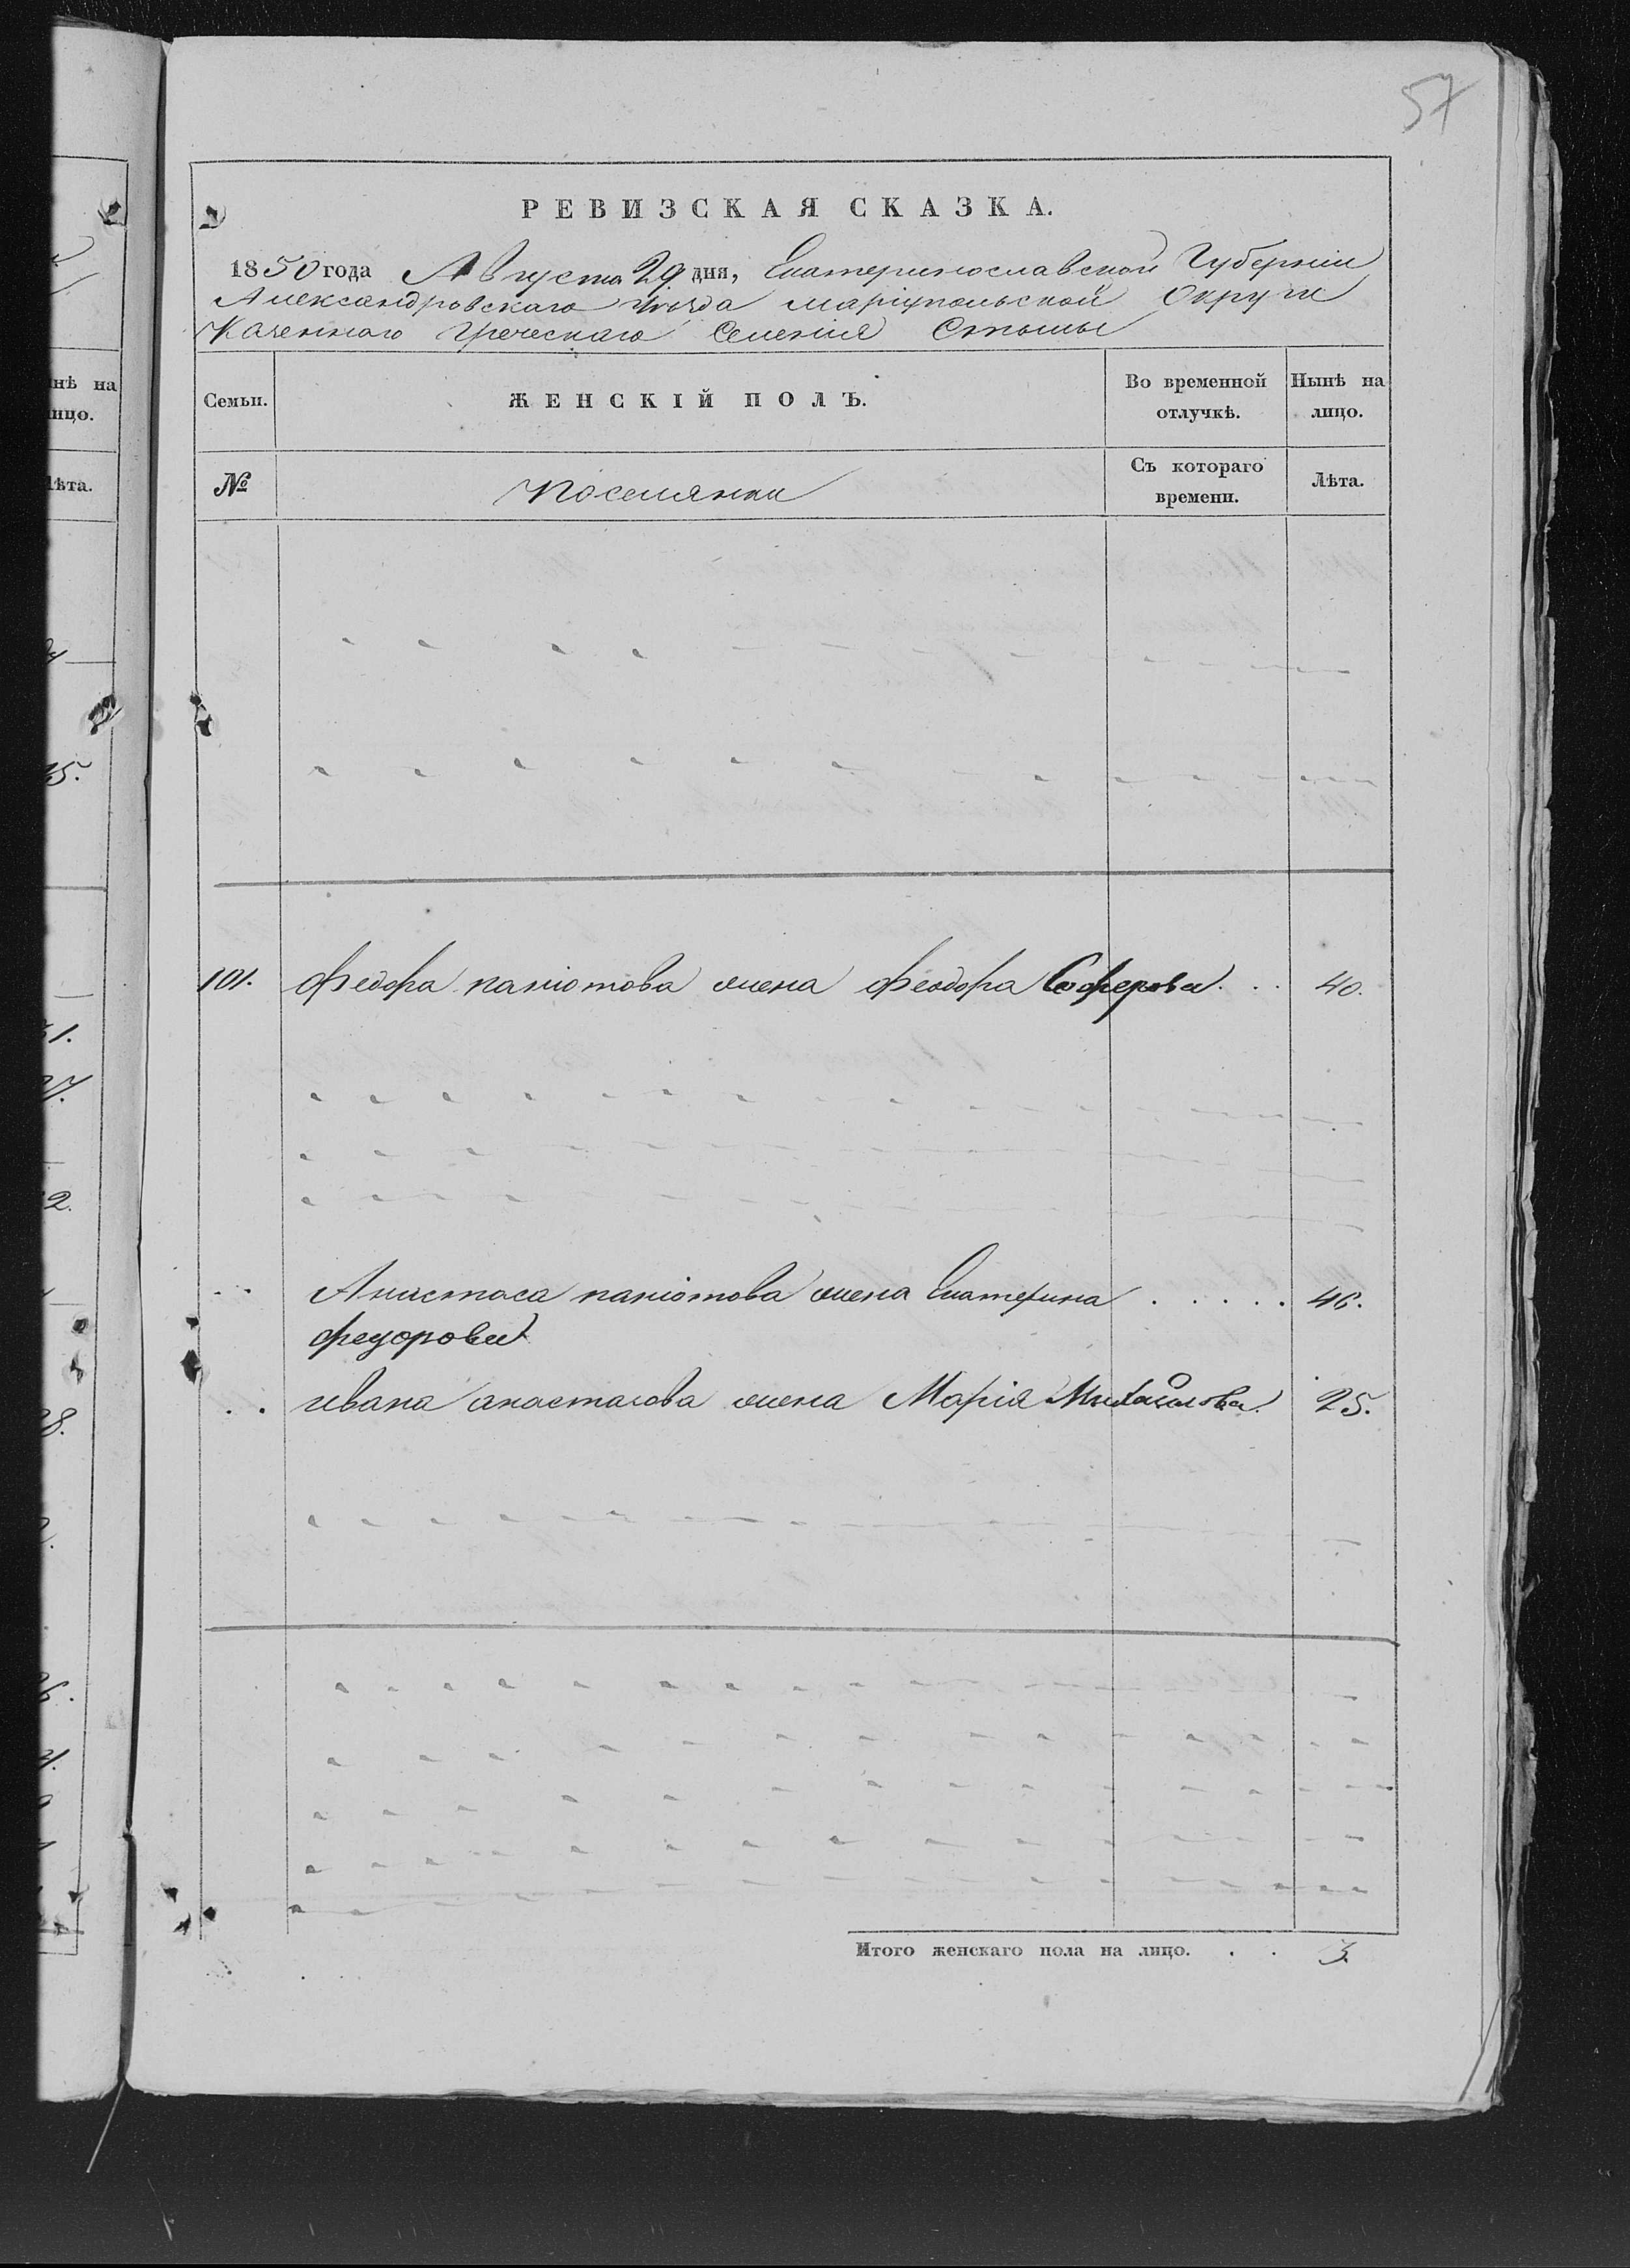 57
РЕВИЗСКАЯ СКАЗКА.
1850 года Августа 29 дня, Екатеринославской Губерніи
Александровскаго уезда маріупольской Округи
Казеннаго Греческаго Селенія Стылы
Семьи.
ЖЕНСКІЙ ПОЛЪ.
Во временной отлучкѣ.
Нынѣ на лицо.
№
поселянки
Съ котораго времени.
Лѣта.
101. Федора паніотова жена Феодора Сеферова . . 40.
Анастаса паніотова жена Екатерина . . . . . 46.
федорова
ивана анастасова жена Марія Михайлова. 25.
Итого женскаго пола на лицо. . . 3.
нѣ на
ицо.
ѣта.
5.
31.
27.
2.
8.